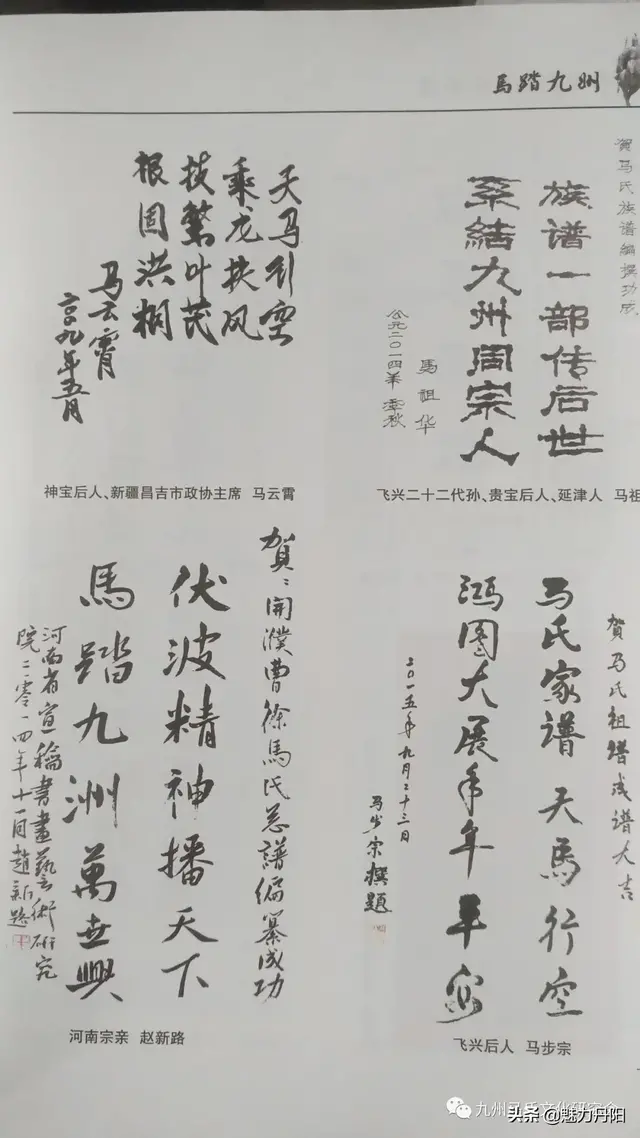 馬踏九州
賀马氏族谱编撰功成
族谱一部传后世
系結九州周宗人
公元二〇一四年季秋
馬祖华
飞兴二十二代孙、贵宝后人、延津人 马祖
天马引空
乘龙扶风
枝繁叶茂
根固洪桐
马云霄
二〇〇九年五月
神宝后人、新疆昌吉市政协主席 马云霄
賀马氏祖谱成谱大吉
马氏家谱天馬行空
鸿图大展
二〇一五年九月二十三日
马步宗撰题
飞兴后人 马步宗
賀：開濮曹徐馬氏总譜编纂成功
伏波精神播天下
馬踏九洲萬世興
河南省宣和書畫藝術研究
院二零一四年十一月趙新路
河南宗亲 赵新路
九州马氏文化研究会
头条@魅力丹阳